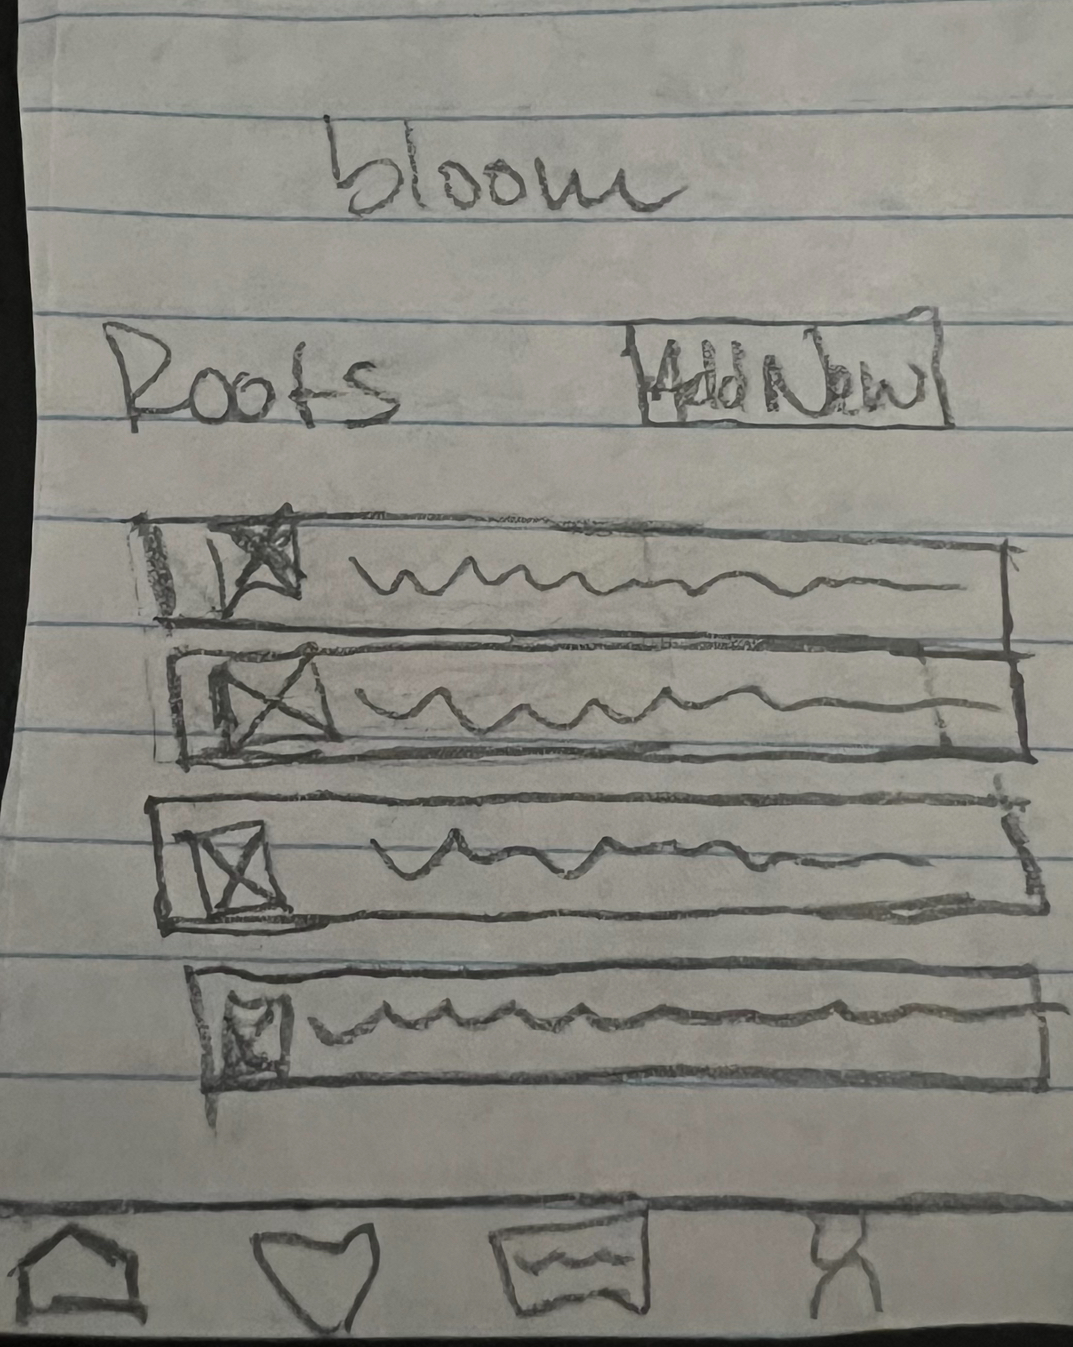 bloom
Roots Add New